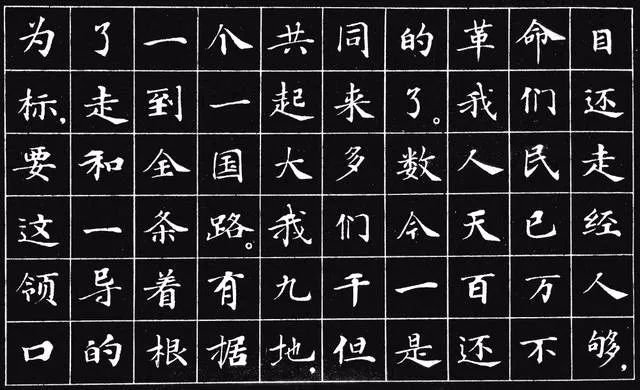 为了一个共同的革命目
标,走到一起来了。我们还
要和全国大多数人民走
这一条路。我们今天已经
领导着有九千一百万人
口的根据地,但是还不够,